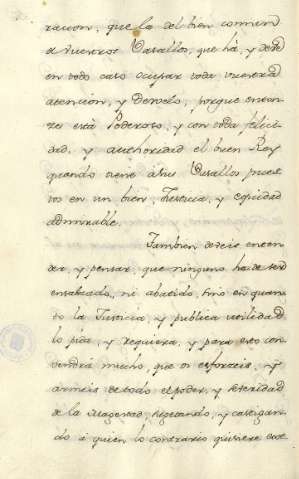 racion, que la del bien comun
de vuestros Vasallos, que há, y debe
en todo caso ocupar toda vuestra
atencion, y desvelo, porque enton-
zes está Poderoso, y con toda felici-
dad, y authoridad el buen Rey
quando tiene á sus Vasallos pues-
tos en un bien, Justicia, y equidad
admirable.
Tambien debeis enten-
der, y pensar, que ninguno ha de ser
ensalzado, ni abatido, sino en quan-
to la Justicia, y publica utilidad
lo pida, y requiera, y para esto con-
vendrá mucho, que os esforceis, y
armeis de todo el poder, y severidad
de la Magestad, sugetando, y castigan-
do á quien lo contrario quisiere